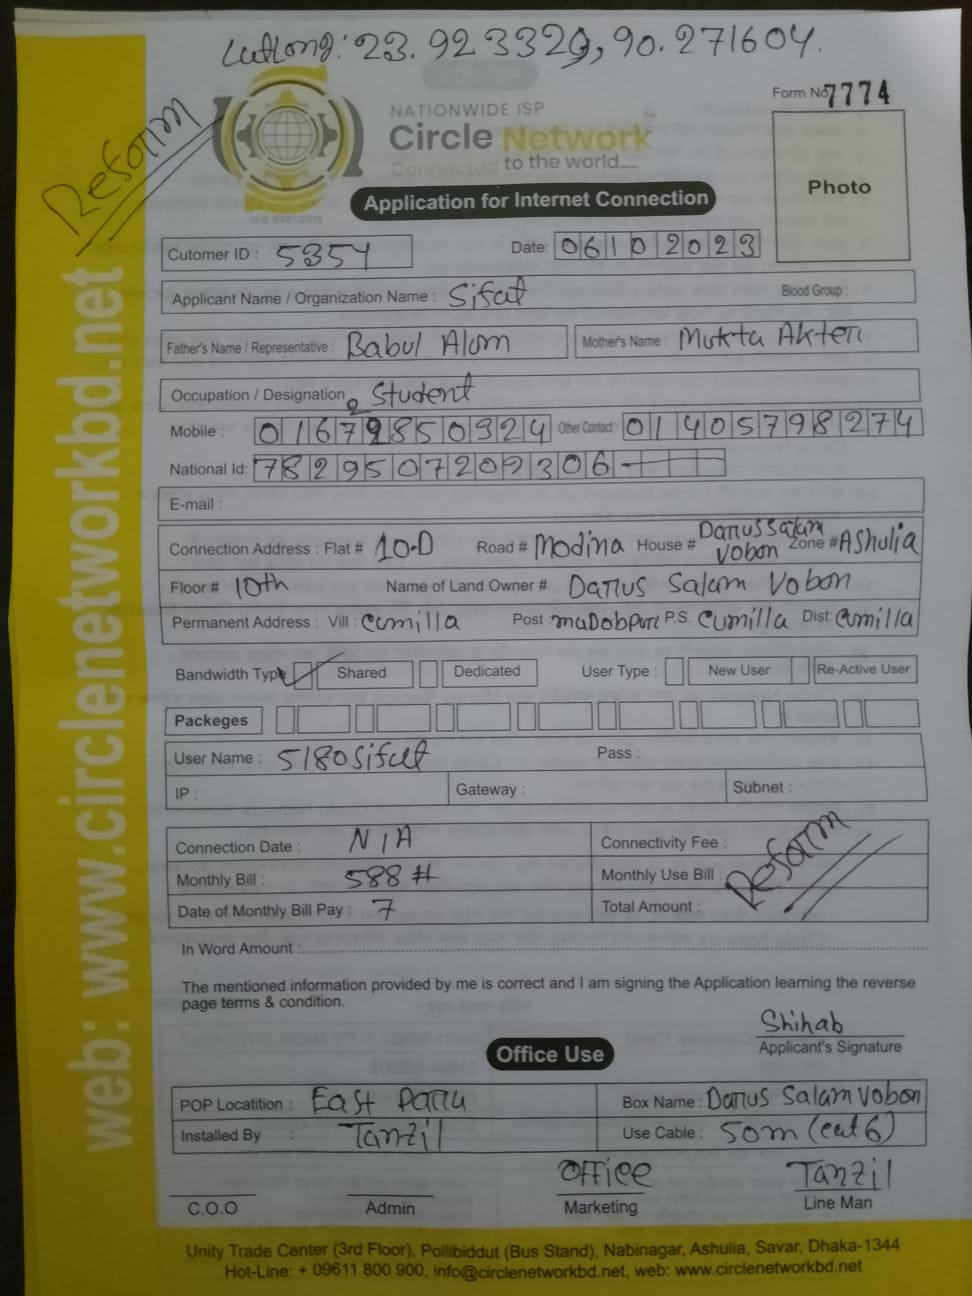 Latlong: 23.923329, 90.271604.
Form No 7774
Reform
NATIONWIDE ISP
Circle Network
Connected to the world
ISO 9001:2015
Photo
Application for Internet Connection
Cutomer ID : 5354
Date: 06102023
Applicant Name / Organization Name : Sifat
Blood Group :
Father's Name / Representative : Babul Alom
Mother's Name : Mukta Akter
Occupation / Designation Student
Mobile : 01679850324 Other Contact : 01405798274
National Id: 7829507202306
E-mail :
Connection Address : Flat # 10-D Road # Modina House # Darussalam Vobon Zone # Ashulia
Floor # 10th Name of Land Owner # Darus Salam Vobon
Permanent Address : Vill : Cumilla Post : madobpur P.S. Cumilla Dist: Cumilla
Bandwidth Type Shared Dedicated User Type : New User Re-Active User
Packeges
User Name : 5180sifat Pass :
IP : Gateway : Subnet :
Connection Date : N/A Connectivity Fee :
Monthly Bill : 588# Monthly Use Bill :
Date of Monthly Bill Pay : 7 Total Amount :
Reform
In Word Amount :
The mentioned information provided by me is correct and I am signing the Application learning the reverse
page terms & condition.
Shihab
Applicant's Signature
Office Use
POP Locatition : East Para Box Name : Darus Salam Vobon
Installed By : Tanzil Use Cable : 50m (cat6)
Office Tanzil
C.O.O Admin Marketing Line Man
Unity Trade Center (3rd Floor), Pollibiddut (Bus Stand), Nabinagar, Ashulia, Savar, Dhaka-1344
Hot-Line: + 09611 800 900, info@circlenetworkbd.net, web: www.circlenetworkbd.net
web: www.circlenetworkbd.net